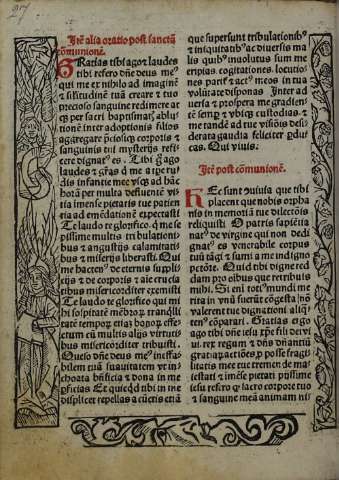 27
Itē alia oratio post sanctā
cōmunionē.
GRatias tibi ago ⁊ laudes
tibi refero dn̄e deus me⁹
qui me ex nihilo ad imaginē
⁊ similitudinē tuā creare ⁊ tuo
precioso sanguine redimere at
per sacri baptismatis ablu
tionē inter adoptionis filios
aggregare
sanguinis tui mysterijs refi
cere dignat⁹ es. Tibi ago
laudes ⁊
infantie me vsq; ad hāc
horā per multa
tia imense pietatis tue patien
tia ad emēdationē expectasti
Te laudo te glorifico.
pissime multis tribulationi
bus ⁊ angustijs calamitati
bus ⁊ miserijs liberasti. Qui
me hacten⁹ de eternis supplic
ijs ⁊ de corporis ⁊ aīe crucia
tibus misericorditer exemisti
Te laudo te glorifico qui mi
hi sospitatē
litatē
ctum cū multis alijs virtuti
bus misericorditer tribuisti.
Queso dn̄e deus me⁹ ineffa
bilem tuā suauitatem vt in
choata bn̄ficia ⁊ dona in me
pficias Et quicqd tibi in me
displicet repellas a cūctis etiā
que supersunt tribulationib⁹
⁊ iniquitatib⁹ ac diuersis ma
lis quib⁹ inuolutus sum me
eripias. cogitationes locutio
nes ⁊ act⁹ meos in tua
volūtate disponas Inter ad
uersa ⁊ prospera me gradien
tē semp ⁊ vbiq; custodias. ⁊
me tandē ad tue visiōis desi
derata gaudia feliciter pdu
cas. Qui viuis.
Itē post cōmunionē.
HEc sunt que tibi
placent que nobis orpha
nis in memoriā tue dilectiōis
reliquisti O patris sapiētia
nat⁹ de virgine qui non dedi
gnat⁹ es venerabile corpus
tuū tāgi ⁊ sumi a me indigno
pctōre. Quid tibi digne red
dam pro oībus que retribuis
mihi. Si eni tot⁹ mundi me
rita in vnū fuerūt cōgesta nō
valerent tue dignationi aliqn
ten⁹ cōparari. Gratias ergo
ago tibi dn̄e iesu xpe fili dei vi
ui. rex regum ⁊ dn̄s dn̄antiū
gratiarū actiōes pro posse fragi
litatis mee tue tremen de ma
iestati ⁊ imēse pietati pijssime
iesu refero q sacro corpore tuo
⁊ sanguine meā animam ni